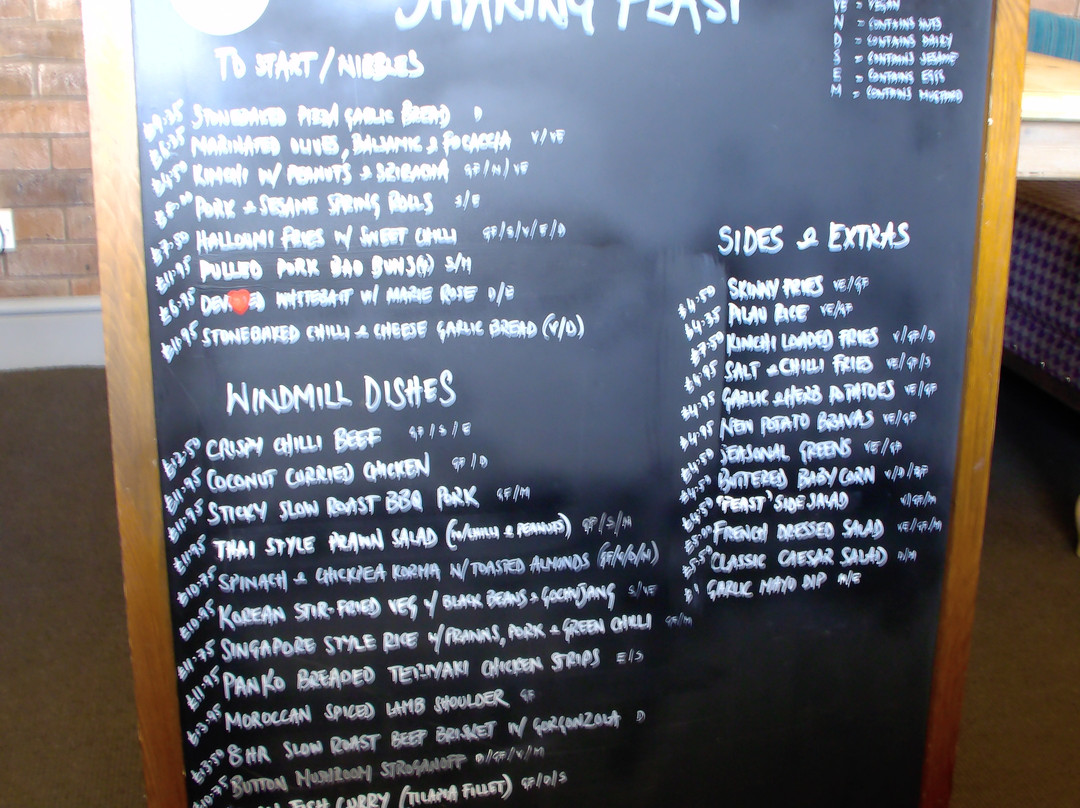 SHARING FEAST
VE = VEGAN
N = CONTAINS NUTS
D = CONTAINS DAIRY
S = CONTAINS SESAME
E = CONTAINS EGGS
M = CONTAINS MUSTARD
TO START / NIBBLES
£9.35 STONEBAKED PIZZA GARLIC BREAD D
£6.35 MARINATED OLIVES, BALSAMIC & FOCACCIA V/VE
£4.50 KIMCHI W/ PEANUTS & SRIRACHA GF/M/VE
PORK & SESAME SPRING ROLLS S/E
£7.50 HALLOUMI FRIES W/ SWEET CHILLI GF/S/V/E/D
£11.95 PULLED PORK BAO BUNS S/M
£6.95 WHITEBAIT W/ MARIE ROSE D/E
£10.95 STONEBAKED CHILLI & CHEESE GARLIC BREAD (V/D)
WINDMILL DISHES
£12.50 CRISPY CHILLI BEEF GF/S/E
£11.95 COCONUT CURRIED CHICKEN GF/D
£11.95 STICKY SLOW ROAST BBQ PORK GF/M
£11.95 THAI STYLE PRAWN SALAD (W/CHILLI & PEANUTS) GF/S/M
£10.75 SPINACH & CHICKPEA KORMA W/ TOASTED ALMONDS
£10.95 KOREAN STIR-FRIED VEG W/ BLACK BEANS & GOCHUJANG S/VE
£11.75 SINGAPORE STYLE RICE W/PRAWNS, PORK & GREEN CHILLI GF/M
£11.95 PANKO BREADED TERIYAKI CHICKEN STRIPS E/S
£13.95 MOROCCAN SPICED LAMB SHOULDER GF
£13.50 8HR SLOW ROAST BEEF BRISKET W/ GORGONZOLA D
£10.75 BUTTON MUSHROOM STROGANOFF D/GF/V/M
FISH CURRY (TILAPIA FILLET) GF/D/S
SIDES & EXTRAS
£4.50 SKINNY FRIES VE/GF
£4.35 PILAU RICE VE/GF
£7.50 KIMCHI LOADED FRIES V/GF/D
£4.95 SALT & CHILLI FRIES VE/GF/S
£4.95 GARLIC & HERB POTATOES VE/GF
£4.95 NEW POTATO BRAVAS VE/GF
£4.50 SEASONAL GREENS VE/GF
£4.50 BUTTERED BABYCORN V/D/GF
£4.50 'FEAST' SIDE SALAD V/GF/M
£5.00 FRENCH DRESSED SALAD VE/GF/M
£5.50 CLASSIC CAESAR SALAD D/M
£1 GARLIC MAYO DIP